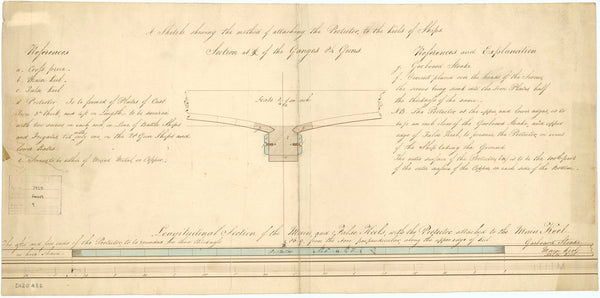 A Sketch shewing the method of attaching the Protector, to the keels of Ships
Section at of the Ganges 84 Guns
References
a. Cross piece
b. Main keel
c. False keel
d. Protector. Is to formed of Plates of Cast
Iron 3" thick and 4ft in Length, to be secured
with two screws in each end in Line of Battle Ships
and Frigates, but only one in the 28 Gun Ships and
lower Rates
e. Screws to either of Mixed Metal, or Copper.
1928
Scale of an inch
References and Explanation
f. Garboard Strake
g. Cement placed over the heads of the Screws,
the screws being sunk into the Iron Plates half
the thickness of the same
NB. The Protector at the upper and lower edges, is to
be an inch clear of the Garboard Strake, and upper
edge of False Keel, to preserve the Protector in case
of the Ship taking the Ground
The outer surface of the Protector, is to be
of the outer surface of the Copper, on each side of the Bottom.
Longitudinal Section of the Main, and False Keels, with the Protector attached to the Main Keel
The after and fore ends of the Protector, to be rounded
from the fore perpendicular along the upper edge of
Garboard Strake
Main Keel
False Keel